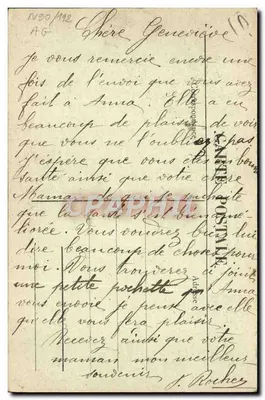 N°90/192
AG
Chère Geneviève
je vous remercie encore une
fois de l'envoi que vous avez
fait à Anna. Elle a eu
beaucoup de plaisir de voir
que vous ne l'oubliez pas
J'espère que vous êtes en bonne
santé ainsi que votre chère
Maman
que la santé s'est bien amé-
liorée. Vous voudrez bien lui
dire beaucoup de choses pour
moi. Vous trouverez ci joint
une petite pochette qu'Anna
vous envoie je pense avec elle
qu'elle vous fera plaisir.
Recevez ainsi que votre
maman mon meilleur
souvenir
J. Rocher
CARTE POSTALE
Correspondance
Adresse